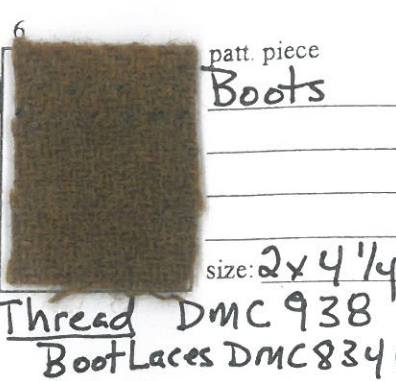 6
patt. piece
Boots
size: 2x4 1/4
Thread DMC 938
BootLaces DMC 834